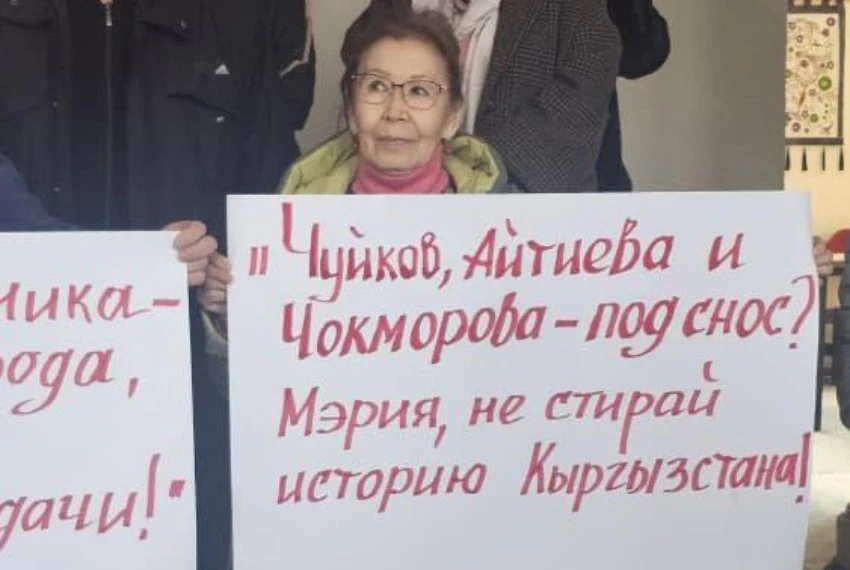 ника-
рода,
дачи!"
"Чуйков, Айтиева и
Чокморова - под снос?
Мэрия, не стирай
историю Кыргызстана!